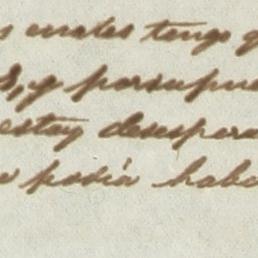 s cuales tengo g
s, y porsupue
estoy desespera
e posía habe